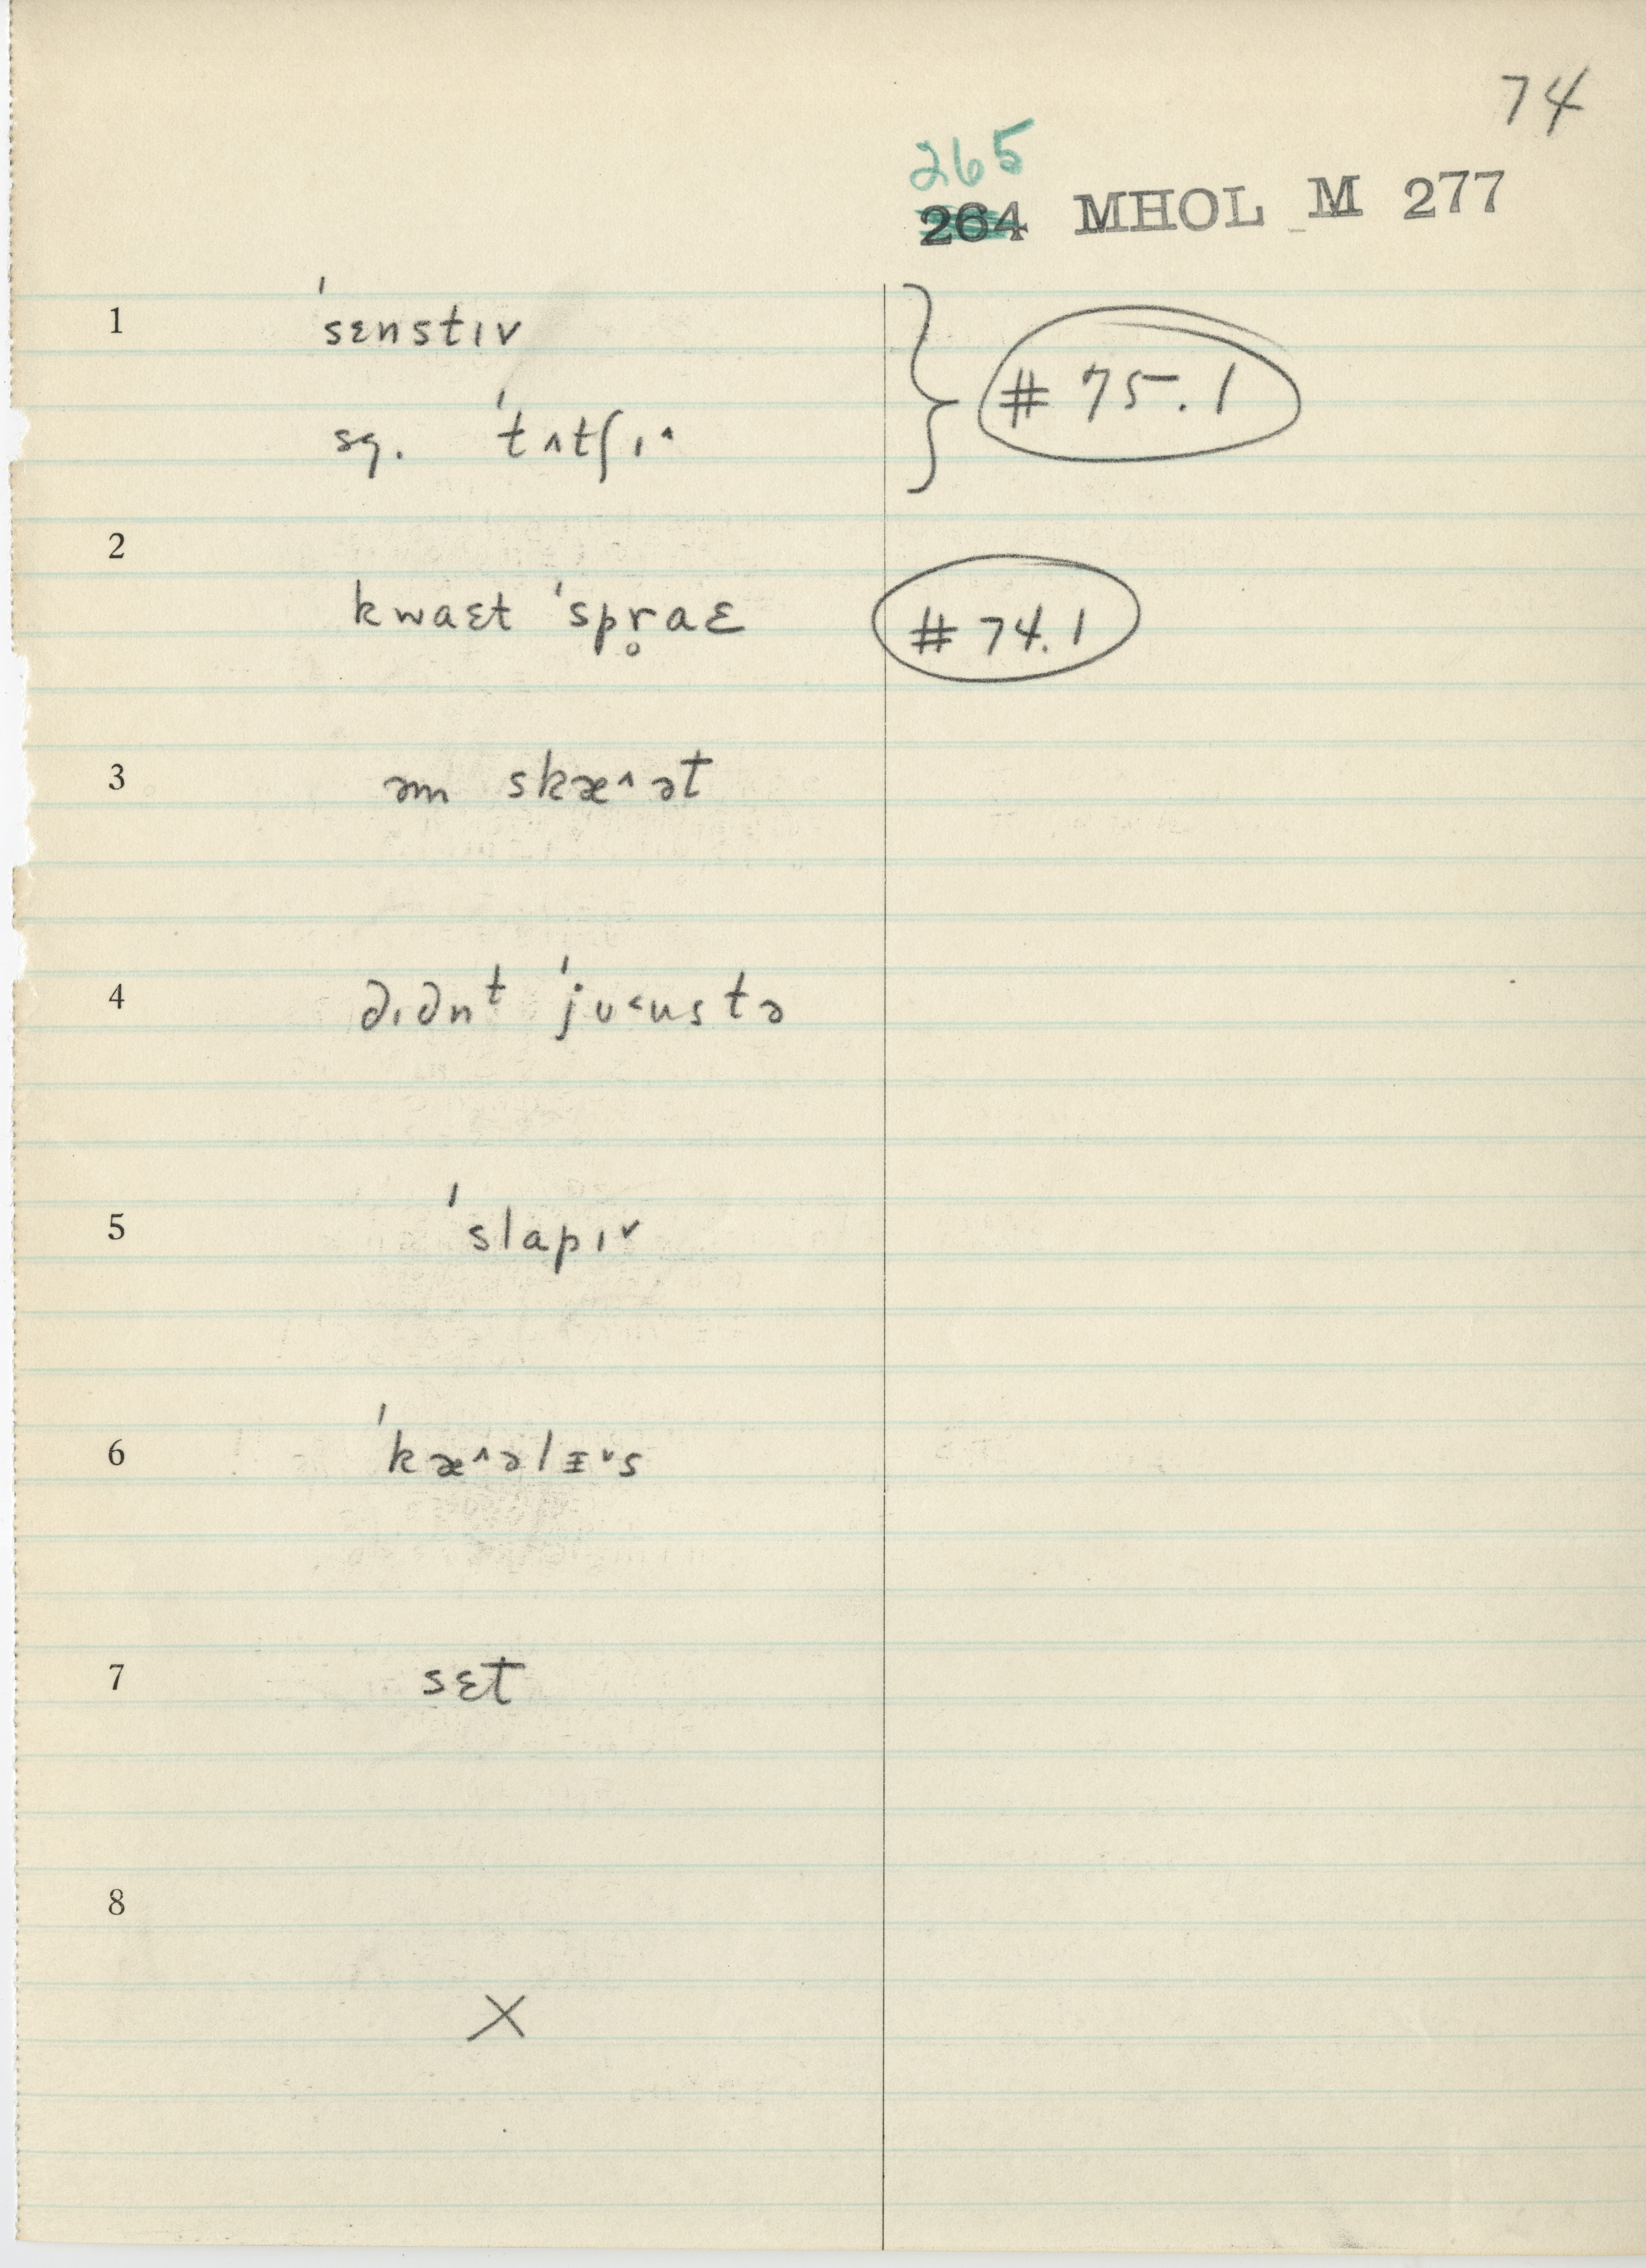 74
265
264 MHOL M 277
1 ˈsɛnstɪv
sg. ˈtʌtʃɪ^ # 75.1
2
kwaɛt ˈspr̥aɛ # 74.1
3 əm skæ^ət
4 ∂ɪ∂nᵗ ˈjʊ<ustə
5 ˈslapɪˇ
6 ˈkæ^əlɪˇs
7 sɛt
8
X